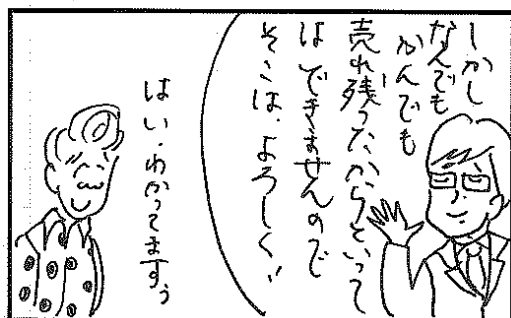 しかし
なんでも
かんでも
売れ残ったからといって
はできませんので
そこは、よろしく!!
はい・わかってますぅ